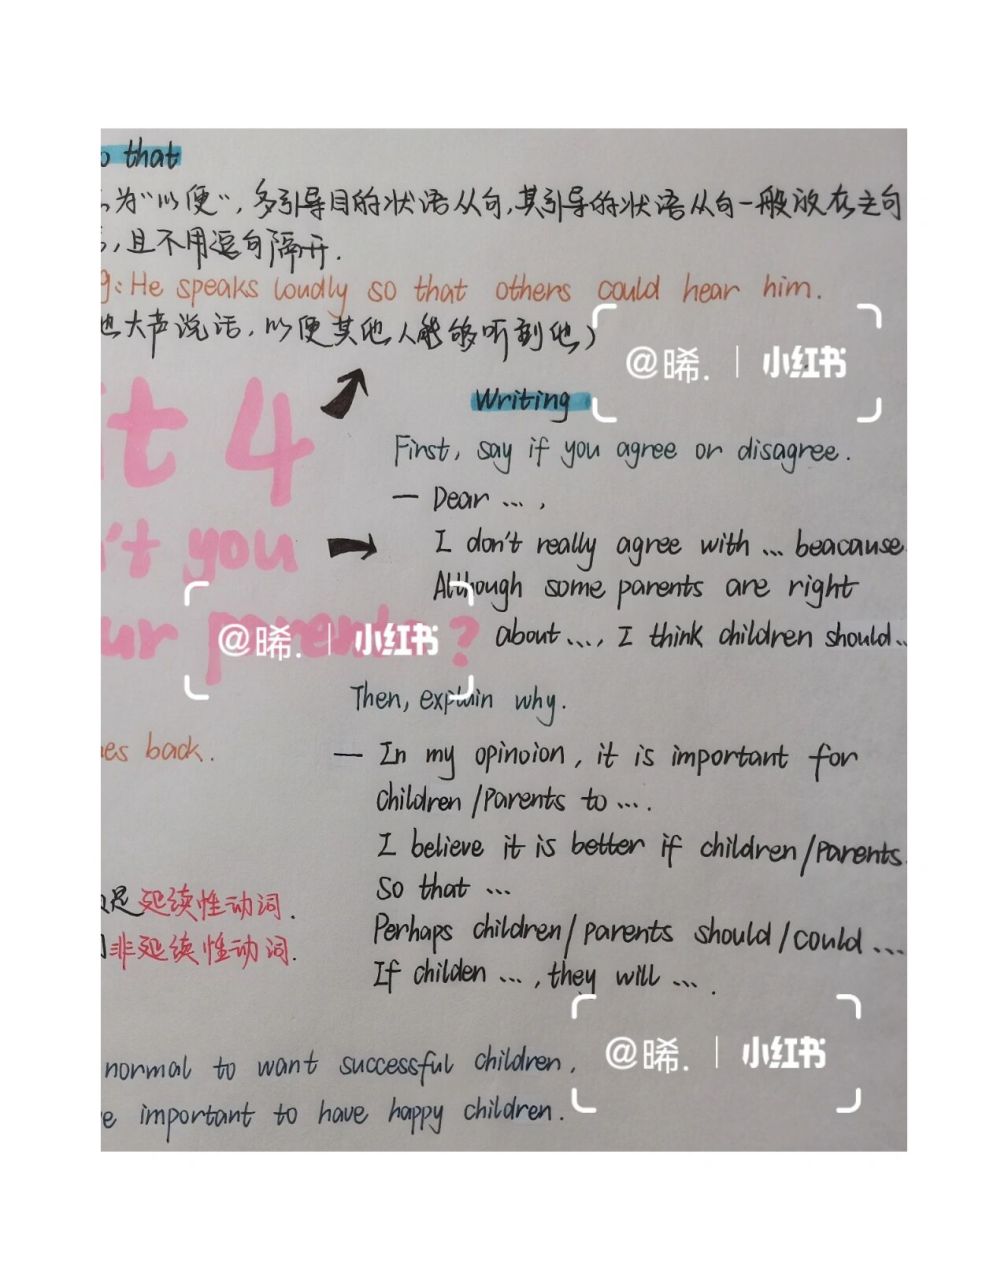 so that
为"以便",多引导目的状语从句,其引导的状语从句一般放在主句
,且不用逗句隔开.
g:He speaks loudly so that others could hear him.
他大声说话,以便其他人能够听到他)
@晞. | 小红书
it 4
Writing
First, say if you agree or disagree.
— Dear ...,
't you
I don't really agree with ... beacause
Although some parents are right
about ..., I think children should...
ur parents?
@晞. | 小红书
Then, explain why.
es back.
— In my opinoion, it is important for
children/Parents to ....
I believe it is better if children/Parents
so that ...
是延续性动词.
非延续性动词.
Perhaps children/parents should/could ...
If childen ..., they will ....
@晞. | 小红书
normal to want successful children,
e important to have happy children.